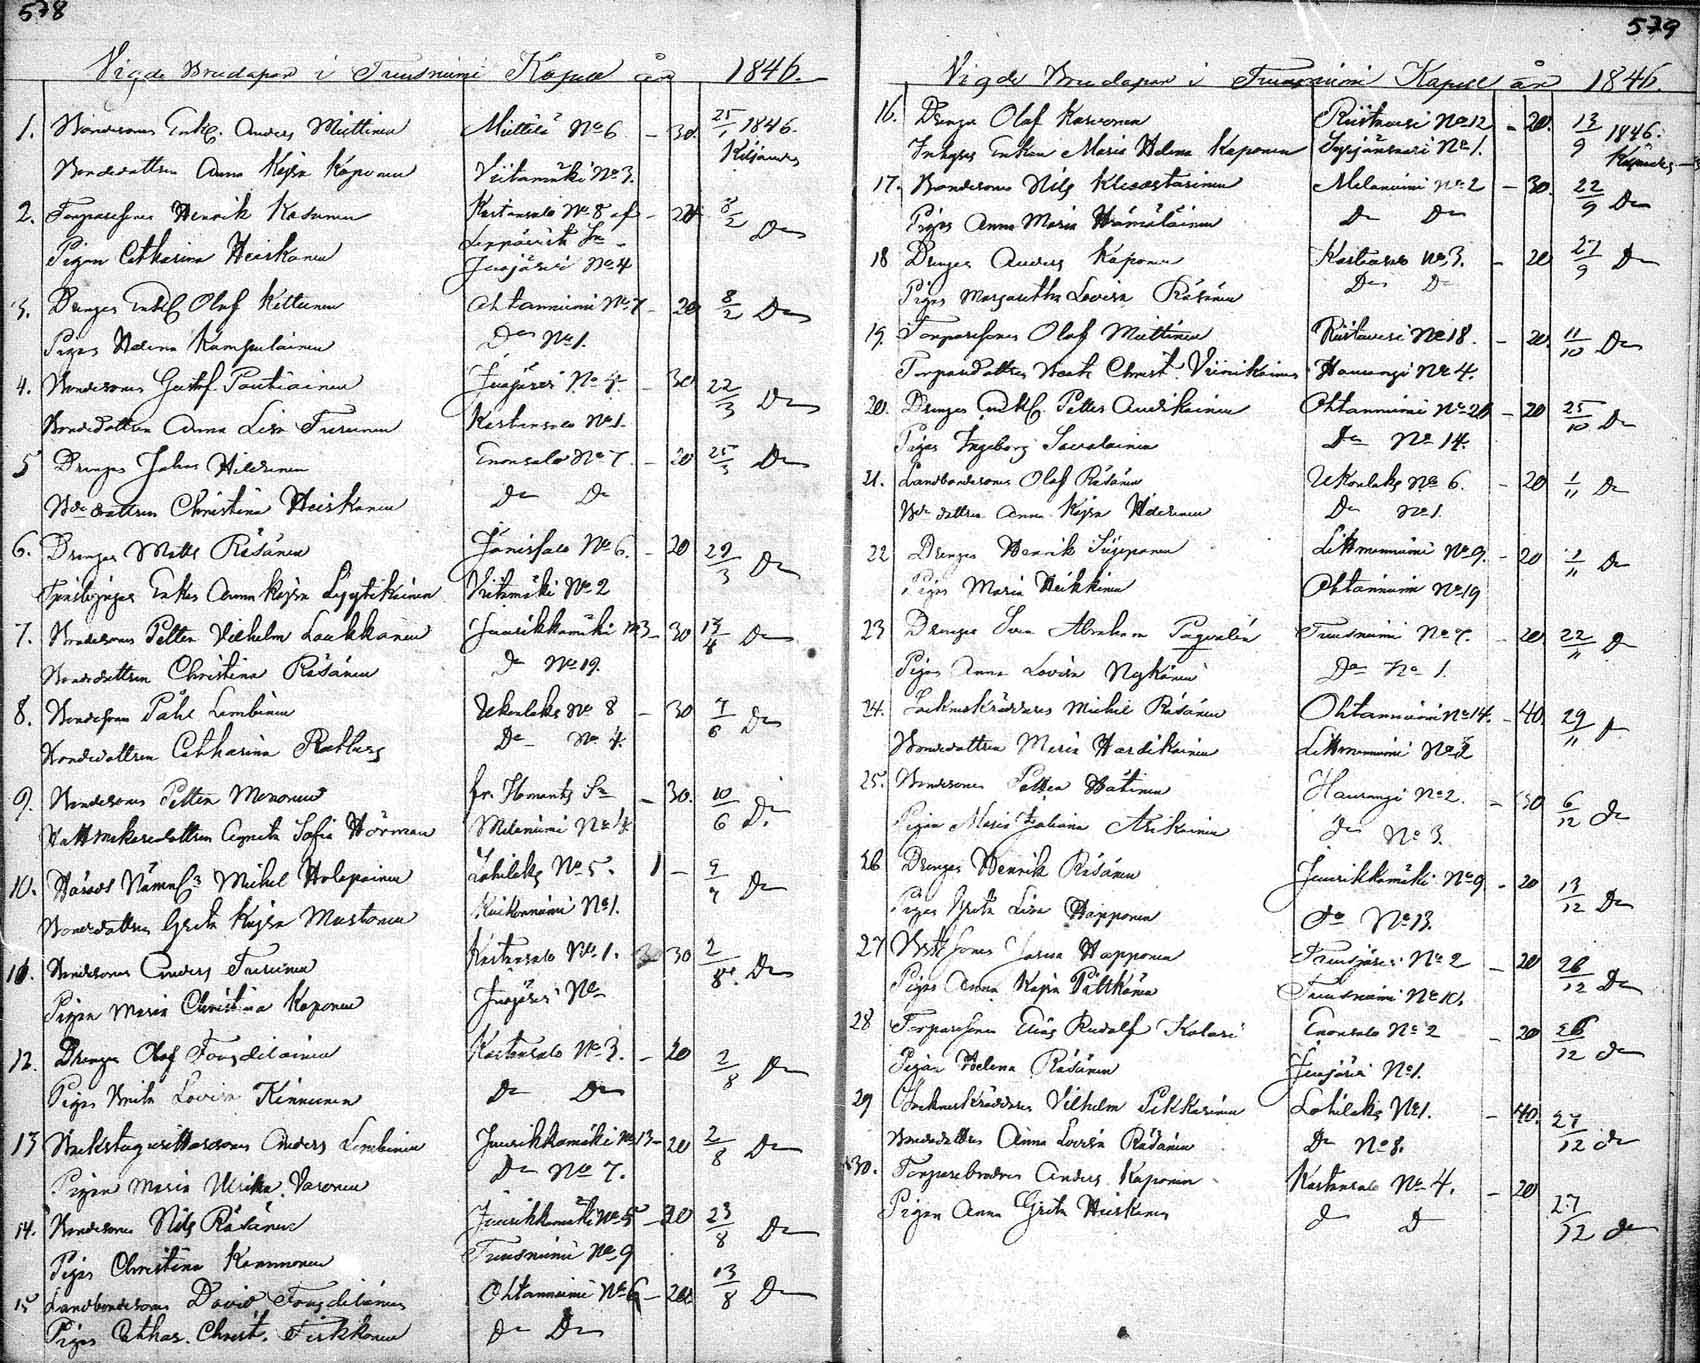 578
Vigde Brudapar i Tuusniemi Kapell år 1846.
1. Bondesonen Enkl. Anders Miettinen Miettilä No 6 - 30. 25/1 1846.
Bondedottren Anna Kajsa Kaponen Viitamäki No 3.
2. Torparesonen Henrik Kosunen Kartansalo No 8 af - 20 8/2 Do
Pigan Catharina Heiskanen Juojärvi No 4
3. Drengen Enkl Olof Kettunen Ohtanniemi No 7 - 20 8/2 Do
Pigan Helena Kumpulainen Do No 1.
4. Bondesonen Gustaf Poutiainen Juojärvi No 4 - 30 22/3 Do
Bondedottren Anna Lisa Turunen Kartansalo No 1.
5 Drengen Johan Hildenen Enonsalo No 7. - 20 25/3 Do
Bdedottren Christina Heiskanen Do Do
6. Drengen Matts Räsänen Jänissalo No 6. - 20 29/3 Do
Enkan Anna Kajsa Lyytikäinen Viitamäki No 2
7. Bondesonen Petter Vilhelm Laukkanen Juurikkamäki No 3 - 30 13/4 Do
Bondedottren Christina Räsänen Do No 19.
8. Bondesonen Påhl Lembinen Ukonlaks No 8 - 30 7/6 Do
Bondedottren Catharina Do No 4.
9. Bondesonen Petter Mononen fr. Ilomants Sn - 30. 10/6 Do
Hattmakaredottren Agneta Sofia Hörman Melaniemi No 4
10. Härads Nämnd Michel Holopainen Lohilaks No 5. 1 - 9/7 Do
Bondedottren Greta Kajsa Mustonen Kuikonniemi No 1.
11. Bondesonen Anders Turunen Kartansalo No 1. 30 2/8. Do
Pigan Maria Christina Kaponen Juojärvi No
12. Drengen Olof Tougdilainen Kartansalo No 3. - 20 2/8 Do
Pigan Brita Lovisa Kinnunen Do Do
13 Anders Lembinen Juurikkamäki No 13 - 20 2/8 Do
Pigan Maria Ulrika Varonen Do No 7.
14. Bondesonen Nils Räsänen Juurikkamäki No 5 - 20 23/8 Do
Pigan Christina Kammonen Tuusniemi No 9
15 Landbondesonen David Tougdilainen Ohtanniemi No 6 - 20 13/8 Do
Pigan Cathar. Christ. Tirkkonen Do Do
579
Vigde Brudapar i Tuusniemi Kapell år 1846.
16. Drengen Olof Karvonen Riistavesi No 12 - 20. 13/9 1846.
Inhyses Enkan Maria Helena Kaponen Syrjänsaari No 1.
17. Bondesonen Nils Melaniemi No 2 - 30. 22/9 Do
Pigan Anna Maria Hämäläinen Do Do
18 Drengen Anders Kaponen No 3. - 20 27/9 Do
Pigan Margaretha Lovisa Räsänen Do Do
19. Torparesonen Olof Miettinen Riistavesi No 18. - 20. 11/10 Do
Torparedottren Beata Christ. Viinikainen Hauvangi No 4.
20. Drengen Enkl Petter Auvikainen Ohtanniemi No 20 - 20 25/10 Do
Pigan Ingeborg Savolainen Do No 14.
21. Landbondesonen Olof Räsänen Ukonlaks No 6. - 20 1/11 Do
Bde dottren Anna Kajsa Hildenen Do No 1.
22 Drengen Henrik Siiseponen Litmaniemi No 9. - 20 1/11 Do
Pigan Maria Heikkinen Ohtaniemi No 19
23 Drengen Sven Abraham Pagvalén Tuusniemi No 7. - 20. 22/11 D
Pigan Anna Lovisa Nykänen Do No 1.
24. Sockneskräddaren Michel Räsänen Ohtanniemi No 14. - 40. 29/11 D
Bondedottren Maria Hardikainen Litmaniemi No 2
25. Bondesonen Petter Hätinen Hauvangi No 2. - 30 6/12 do
Pigan Maria Juliana Asikainen do No 3.
26 Drengen Henrik Räsänen Juurikkamäki No 9 - 20 13/12 Do
Pigan Greta Lisa Happonen do No 13.
27 Josua Happonen Tuusjärvi No 2 - 20 26/12 Do
Pigan Anna Kajsa Pältkänen Tuusniemi No 10.
28 Torparesonen Elias Rudolf Kolari Enonsalo No 2 20 26/12 do
Pigan Helena Räsänen Juojärvi No 1.
29 Sockneskräddaren Vilhelm Pekkarinen Lohilaks No 1. - 40. 27/12 do
Bondedottren Anna Lovisa Räsänen Do No 8.
30. Torparebrodren Anders Kaponen Kartansalo No 4. - 20 27/12 do
Pigan Anna Greta Heiskanen d D